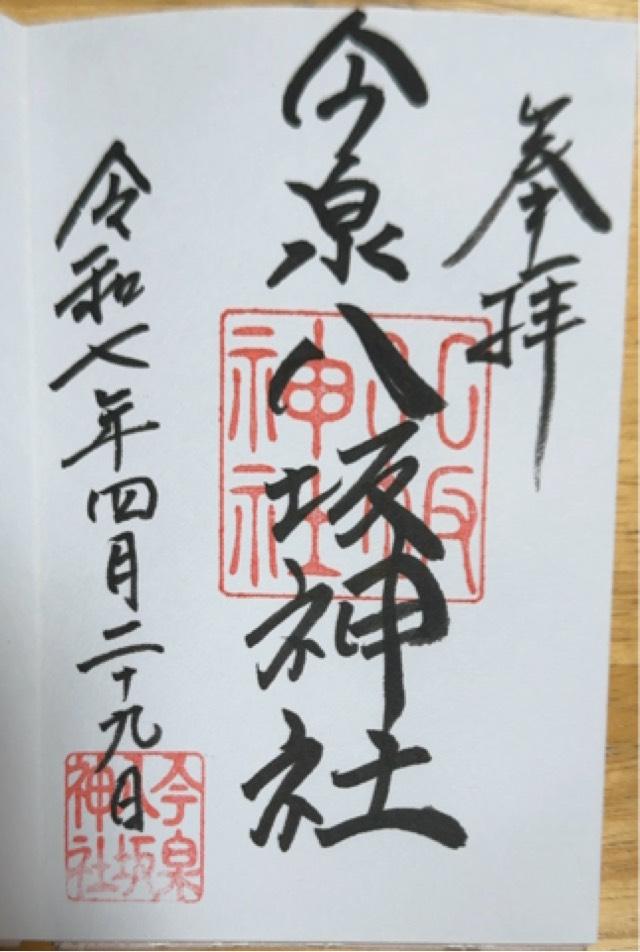 奉拝
今泉八坂神社
八坂神社
令和七年四月二十九日
今泉八坂神社